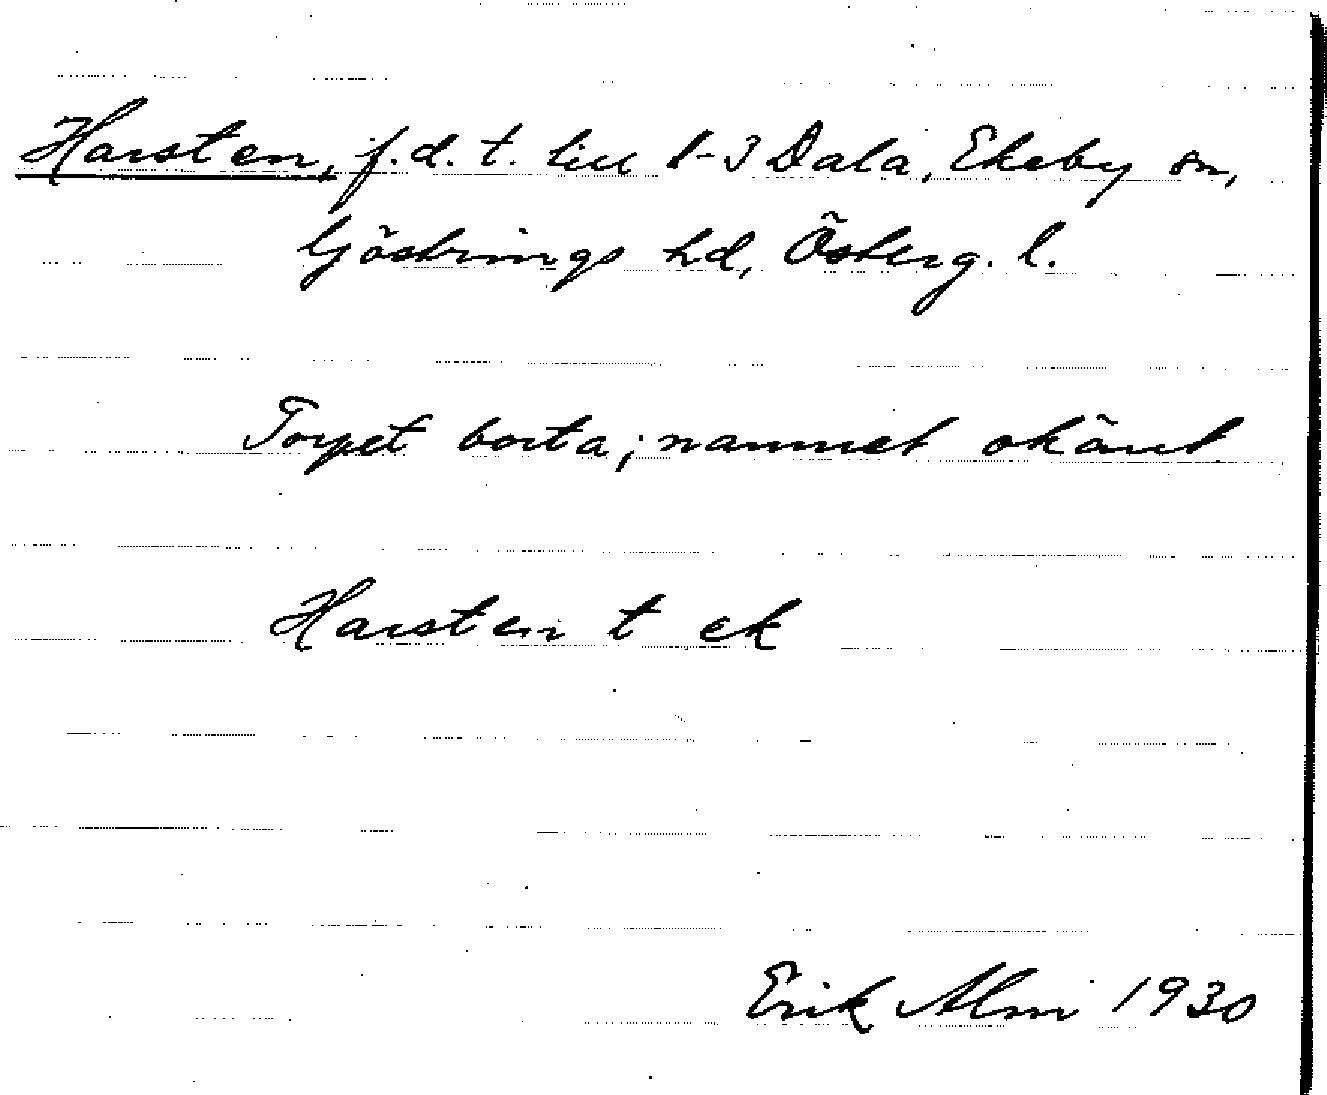 Harsten, f.d. t. till 1-3 Dala, Ekeby sn,
Göstrings hd, Österg. l.
Torpet borta; namnet okänt
Harsten t ek
Erik Alm 1930